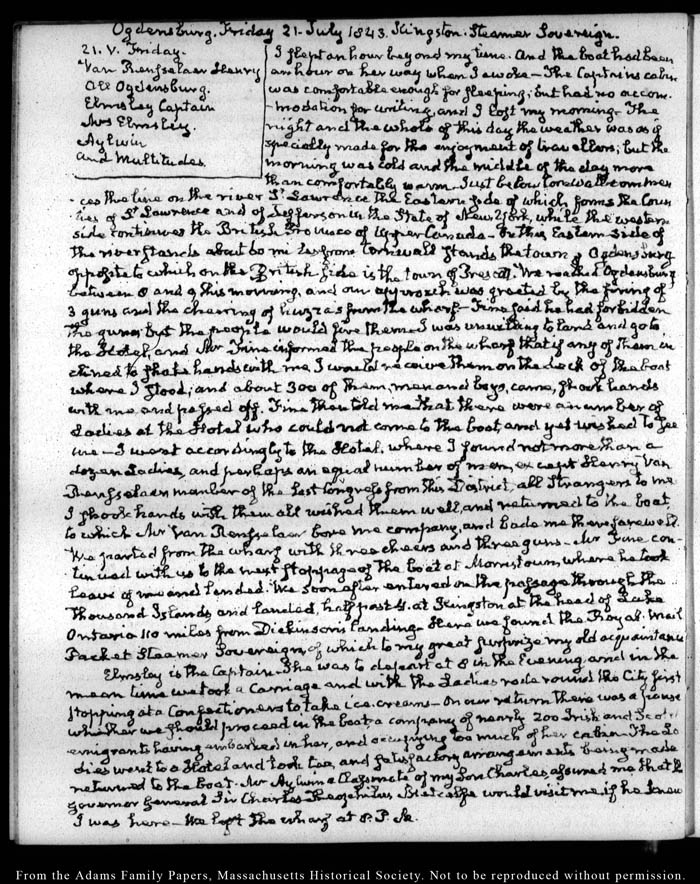 Ogdensburg. Friday 21. July 1843. Kingston. Steamer Sovereign.
21. V. Friday.
Van Rensselaer Henry
All Ogdensburg.
Elmsley Captain
Mrs Elmsley.
Aylwin
and Multitudes.
I slept an hour beyond my time. And the boat had been
an hour on her way when I awoke — The Captain's cabin
was comfortable enough for sleeping; but had no accom-
-modation for writing, and I lost my morning. The
night and the whole of this day the weather was as if
specially made for the enjoyment of travellers; but the
morning was cold and the middle of the day more
than comfortably warm. Just below Cornwall commen-
-ces the line on the river St. Lawrence the Eastern side of which forms the Coun-
ties of St Lawrence and of Jefferson in the State of New York, while the western
side continues the British Province of Upper Canada — On this Eastern side of
the river stands about 60 miles from Cornwall stands the town of Ogdensburg
opposite to which on the British side is the town of Prescott. We reached Ogdensburg
between 8 and 9 this morning, and our approach was greeted by the firing of
3 guns and the cheering of huzzas from the wharf — Fine said he had forbidden
the guns, but the people would fire them. I was unwilling to land and go to
the Hotel, and Mr Fine informed the people on the wharf that if any of them in-
clined to shake hands with me, I would receive them on the deck of the boat
where I stood; and about 300 of them, men and boys, came, shook hands
with me and passed off. Fine then told me that there were a number of
Ladies at the Hotel who could not come to the boat, and yet wished to see
me — I went accordingly to the Hotel, where I found not more than a
dozen Ladies, and perhaps an equal number of men, except Henry Van
Rensselaer member of the last Congress from this District, all Strangers to me
I shook hands with them all wished them well, and returned to the boat,
to which Mr Van Rensselaer bore me company, and bade me there farewell.
We parted from the wharf with three cheers and three guns — Mr Fine con-
tinued with us to the next stoppage of the boat at Morristown, where he took
leave of me and landed. We soon after entered on the passage through the
Thousand Islands and landed, half past 4. at Kingston at the head of Lake
Ontario 110 miles from Dickinson's Landing. Here we found the Royal Mail
Packet Steamer Sovereign, of which to my great surprize my old acquaintance
Elmsley is the Captain. She was to depart at 8 in the Evening and in the
mean time we took a Carriage and with the Ladies rode round the City first
stopping at a Confectioners to take ice-creams — On our return there was a pause
whether we should proceed in the boat, a company of nearly 200 Irish and Scotch
emigrants having embarked in her, and occupying too much of her cabin — The La-
dies went to a Hotel and took tea, and satisfactory arrangements being made
returned to the boat. Mr Aylwin a Classmate of my Son Charles, assured me that the
Governor General Sir Charles Theophilus Metcalfe would visit me, if he knew
I was here — We left the wharf at 8. P.M.
From the Adams Family Papers, Massachusetts Historical Society. Not to be reproduced without permission.